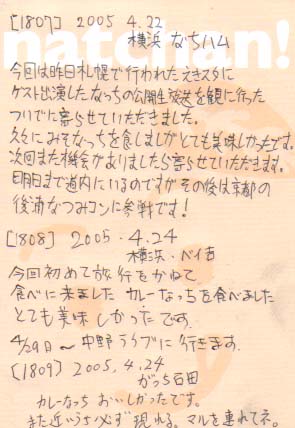 natchan!
[1807] 2005 4.22
横浜 なちハム
今回は昨日札幌で行われたえきスタに
ゲスト出演したなっちの公開生放送を観に行った
ついでに寄らせていただきました。
久々にみそなっちを食しましがとても美味しかったです。
次回また機会がありましたら寄らせていただきます。
明日まで道内にいるのですがその後は京都の
後浦なつみコンに参戦です!
[1808] 2005.4.24
横浜・ベイ吉
今回初めて旅行をかねて
食べに来ました カレーなっちを食べました
とても美味しかったです。
4/29日~中野ライブに行きます。
[1809] 2005.4.24
がっち石田
カレーなっち おいしかったです。
また近いうち必ず現れる。マルを連れてネ。